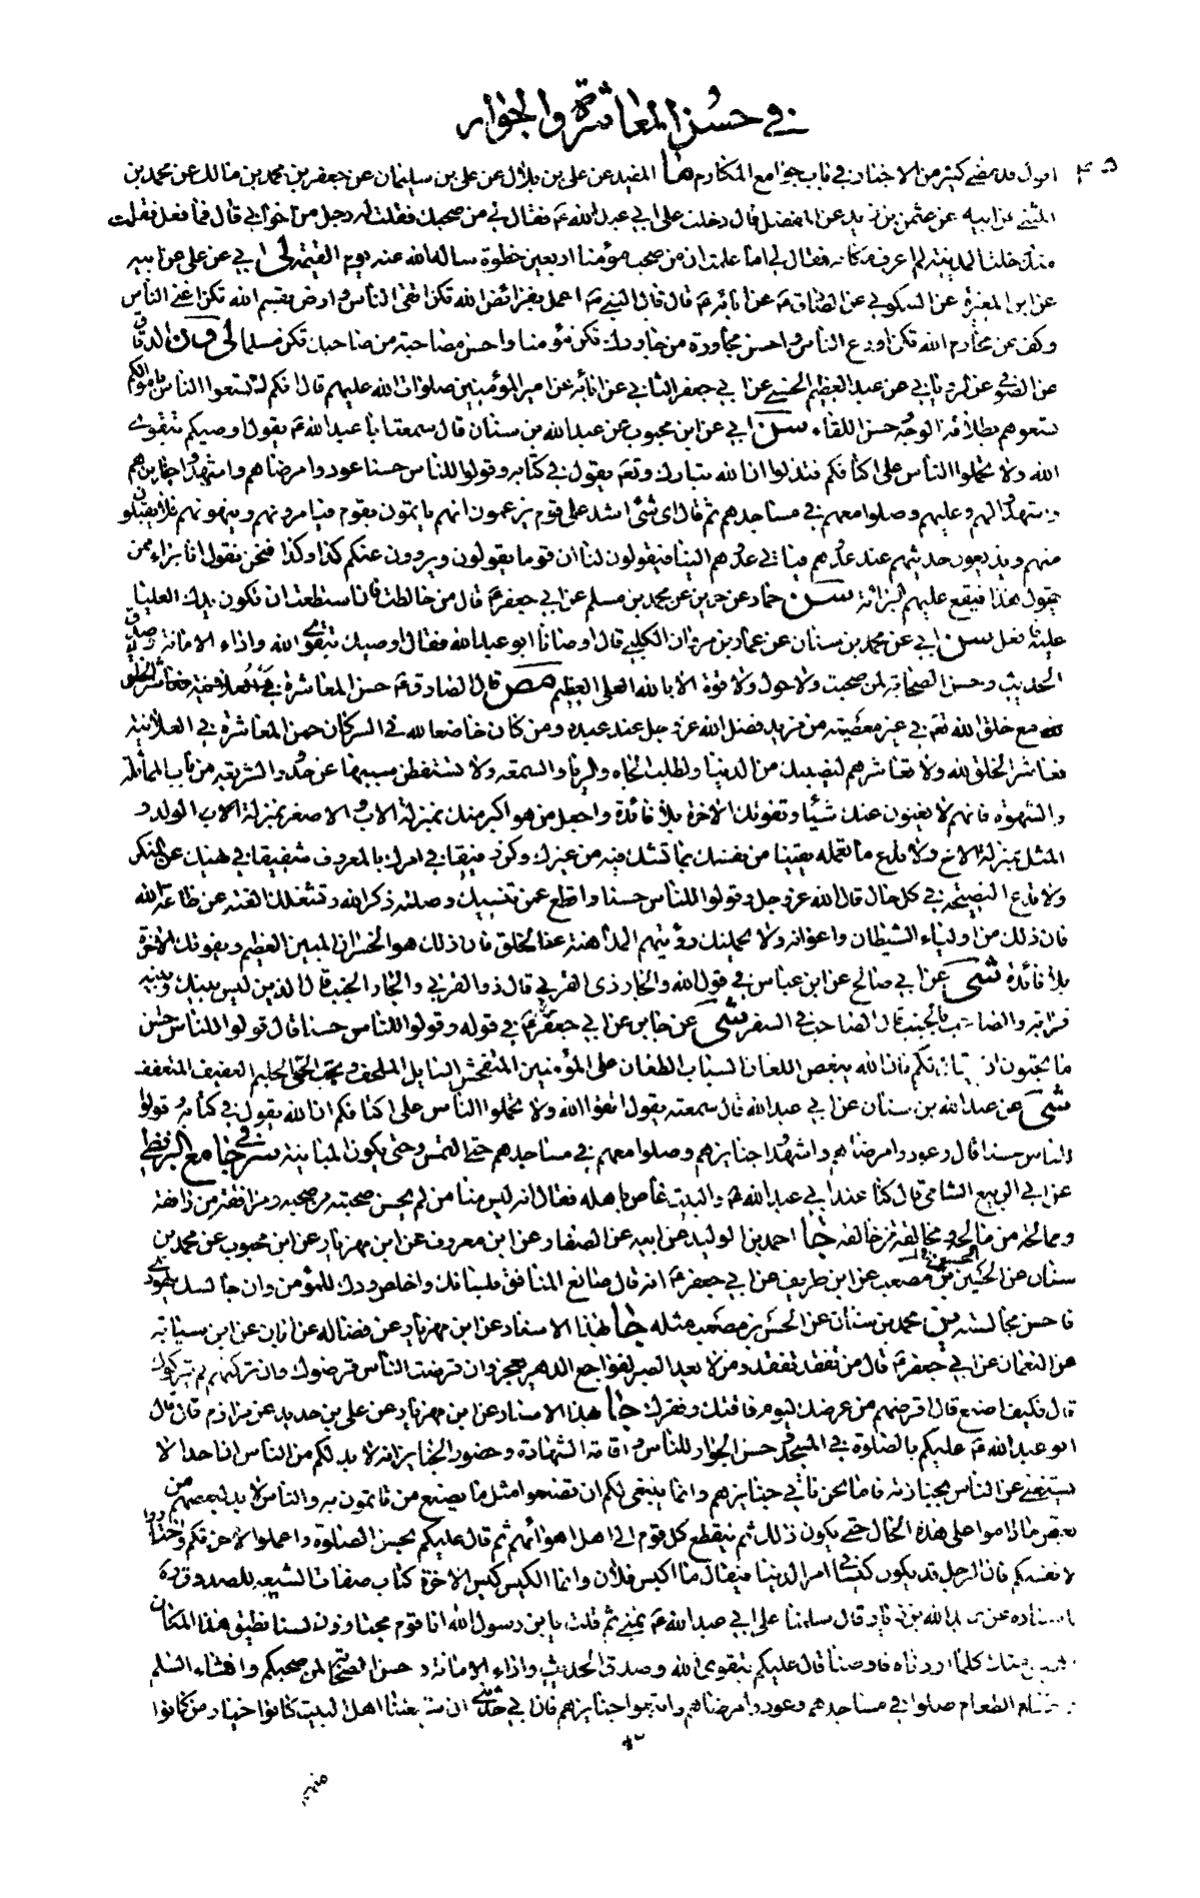 في حسن المعاشرة والجوار
اقول قد مضى كثير من الاخبار في باب جوامع المكارم ما المفيد عن علي بن بلال عن علي بن سليمان عن جعفر بن محمد بن مالك عن محمد بن
المثنى عن ابيه عن عثمن بن زيد عن المفضل قال دخلت على ابي عبد الله ع فقال لي من صحبك فقلت له رجل من اخواني قال فما فعل فقلت
منذ دخلت المدينة لم اعرف مكانه فقال لي اما علمت ان من صحب مؤمنا اربعين خطوة ساله الله عنه يوم القيمة لي ابي عن علي عن ابيه
عن ابن المغيرة عن السكوني عن الصادق ع عن ابائه ع قال قال النبي ع اعمل بفرائض الله تكن اتقى الناس وارض بقسم الله تكن اغنى الناس
وكف عن محارم الله تكن اورع الناس واحسن مجاورة من جاورك تكن مؤمنا واحسن مصاحبة من صاحبك تكن مسلما لي الدقاق
عن الصوفي عن الروياني عن عبد العظيم الحسني عن ابي جعفر الثاني عن ابائه عن امير المؤمنين صلوات الله عليهم قال انكم لن تسعوا الناس باموالكم
فسعوهم بطلاقة الوجه وحسن اللقاء سن ابي عن ابن محبوب عن عبد الله بن سنان قال سمعت ابا عبد الله ع يقول اوصيكم بتقوى
الله ولا تحملوا الناس على اكتافكم فتذلوا ان الله تبارك وتع يقول في كتابه وقولوا للناس حسنا عودوا مرضاهم واشهدوا جنايزهم
واشهدوا لهم وعليهم وصلوا معهم في مساجدهم ثم قال اى شئ اشد على قوم يزعمون انهم ياتمون بقوم فيامرونهم وينهونهم فلا يقبلون
منهم ويذيعون حديثهم عند عدوهم فياتي عدوهم الينا فيقولون لنا ان قوما يقولون ويروون عنكم كذا وكذا فنحن نقول انا براء ممن
يقول هذا فيقع عليهم البرائة سن حماد عن حريز عن محمد بن مسلم عن ابي جعفر ع قال من خالطت فان استطعت ان تكون يدك العليا
عليه فافعل سن ابي عن محمد بن سنان عن عمار بن مروان الكلبي قال اوصانا ابو عبد الله فقال اوصيك بتقوى الله واداء الامانة وصدق
الحديث وحسن الصحابة لمن صحبت ولا حول ولا قوة الا بالله العلي العظيم مص قال الصادق ع حسن المعاشرة
مع خلق الله تع في غير معصيته من مزيد فضل الله عز وجل عند عبده ومن كان خاضعا لله في السر كان حسن المعاشرة في العلانية
فعاشر الخلق لله ولا تعاشرهم لنصيبك من الدنيا ولطلب الجاه والريا والسمعة ولا تسقطن بسببها عن حدود الشريعة من باب المماثلة
والشهوة فانهم لا يغنون عنك شيئا وتفوتك الاخرة بلا فائدة واجعل من هو اكبر منك بمنزلة الاب والاصغر بمنزلة الولد و
المثل بمنزلة الاخ ولا تدع ما تعلمه يقينا من نفسك بما تشك فيه من غيرك وكن رفيقا في امرك بالمعروف شفيقا في نهيك عن المنكر
ولا تدع النصيحة في كل حال قال الله عز وجل وقولوا للناس حسنا واقطع عمن تنسيك وصلته ذكر الله وتشغلك الفته عن طاعة الله
فان ذلك من اولياء الشيطان واعوانه ولا يحملنك رؤيتهم المداهنة عند الخلق فان ذلك هو الخسران المبين العظيم ويفوتك الاخرة
بلا فائدة شى عن ابي صالح عن ابن عباس في قول الله والجار ذى القربى قال ذو القربى والجار الجنب قال الذي ليس بينك وبينه
قرابة والصاحب بالجنب قال الصاحب في السفر شى عن جابر عن ابي جعفر ع في قوله وقولوا للناس حسنا قال قولوا للناس احسن
ما تحبون ان يقال لكم فان الله يبغض اللعان السباب الطعان على المؤمنين المتفحش السايل الملحف ويحب الحيي الحليم العفيف المتعفف
شى عن عبد الله بن سنان عن ابي عبد الله قال سمعته يقول اتقوا الله ولا تحملوا الناس على اكتافكم ان الله يقول في كتابه وقولوا
للناس حسنا قال وعودوا مرضاهم واشهدوا جنايزهم وصلوا معهم في مساجدهم حتى النفس وحتى يكون المباينة سر في جامع البزنطي
عن ابي الربيع الشامي قال كنا عند ابي عبد الله ع والبيت غاص باهله فقال انه ليس منا من لم يحسن صحبة من صحبه ومرافقة من رافقه
وممالحة من مالحه ومخالقة من خالقه جا احمد بن الوليد عن ابيه عن الصفار عن ابن معروف عن ابن مهزيار عن ابن محبوب عن محمد بن
سنان عن الحسين بن مصعب عن ابن طريف عن ابي جعفر ع انه قال صانع المنافق بلسانك واخلص ودك للمؤمن وان جالسك يهودى
فاحسن مجالسته محمد بن سنان عن الحسين بن مصعب مثله جا بهذا الاسناد عن ابن مهزيار عن فضاله عن ابان عن ابن سيابة
عن النعمان عن ابي جعفر ع قال من تفقد تفقد ومن لا يعد الصبر لفواجع الدهر يعجز وان قرضت الناس قرضوك وان تركتهم لم يتركوك
قال فكيف اصنع قال اقرضهم من عرضك ليوم فاقتك وفقرك جا بهذا الاسناد عن ابن مهزيار عن علي بن حديد عن مرازم قال قال
ابو عبد الله ع عليكم بالصلوة في المسجد وحسن الجوار للناس واقامة الشهادة وحضور الجنايز انه لا بد لكم من الناس ان احدا لا
يستغني عن الناس بجنازته فاما نحن ناتي جنايزهم وانما ينبغي لكم ان تصنعوا مثل ما يصنع من تاتمون به والناس لا بد لبعضهم من
بعض ما داموا على هذه الحال حتى يكون ذلك ثم ينقطع كل قوم الى اهل اهوائهم ثم قال عليكم بحسن الصلوة واعملوا لاخرتكم واختاروا
لانفسكم فان الرجل قد يكون كيسا في امر الدنيا فيقال ما اكيس فلان وانما الكيس كيس الاخرة كتاب صفات الشيعه للصدوق ره
باسناده عن عبد الله بن زياد قال سلمنا على ابي عبد الله ع بمنى ثم قلت يا بن رسول الله انا قوم مجتازون لسنا نطيق هذا المكان
منك كلما اردناه فاوصنا قال عليكم بتقوى الله وصدق الحديث واداء الامانة وحسن الصحابة لمن صحبكم وافشاء السلم
واطعام الطعام صلوا في مساجدهم وعودوا مرضاهم واتبعوا جنايزهم فان ابي حدثني ان شيعتنا اهل البيت كانوا خيار من كانوا
منهم